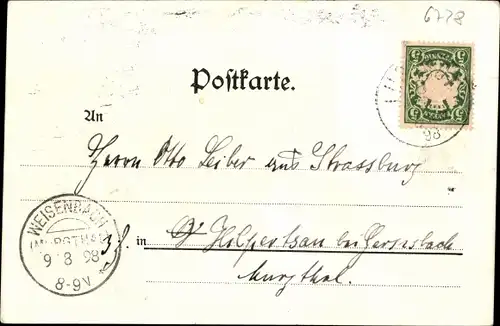 6778
Postkarte.
An
Herrn Otto Leiber aus Strassburg
z. Z. in Hilpertsau bei Gernsbach
Murgthal.
WEISENBACH
(MURGTHAL)
9 8 98
8-9V
98
5 5
5 5